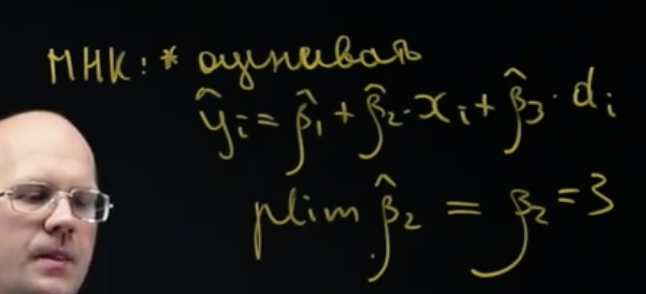 МНК: * оценивать
ŷᵢ = β̂₁ + β̂₂ · xᵢ + β̂₃ · dᵢ
plim β̂₂ = β₂ = 3